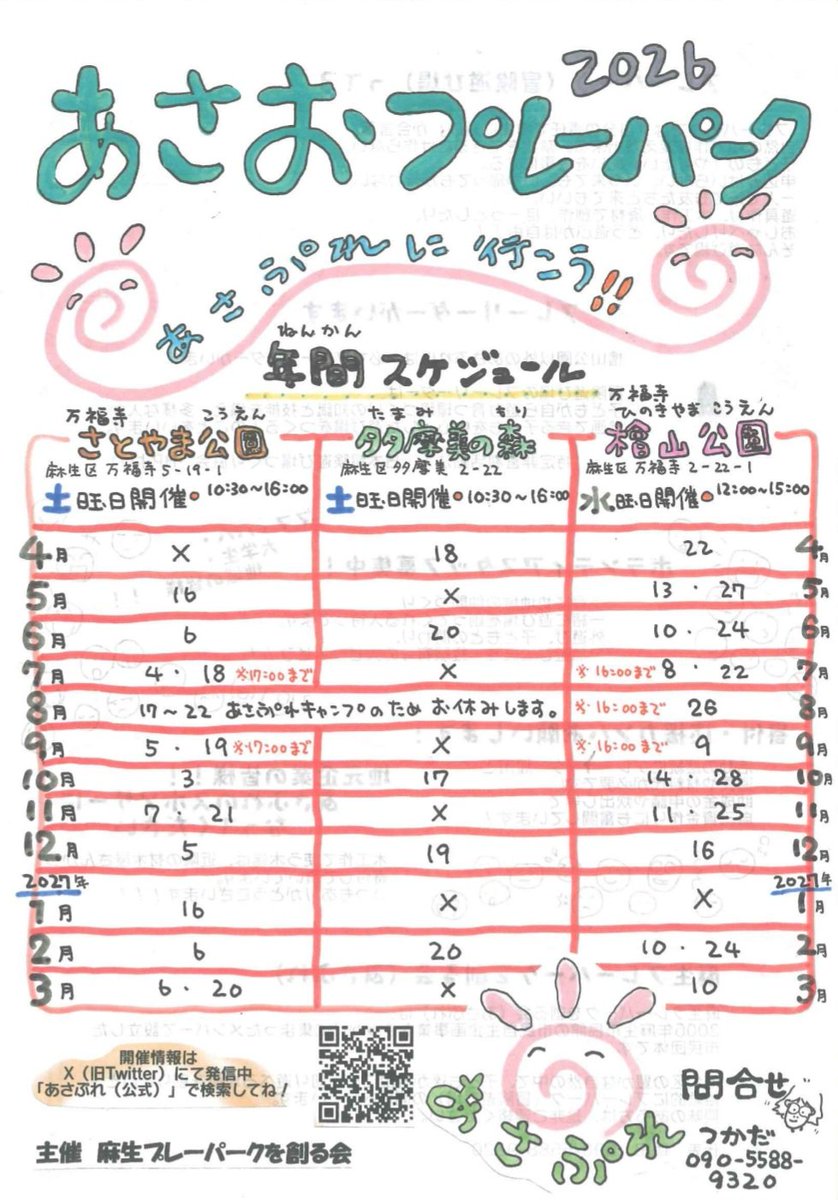 2026
あさおプレーパーク
あさぷれに行こう!!
ねんかん
年間スケジュール
万福寺 こうえん
さとやま公園
麻生区 万福寺5-19-1
土曜日開催・10:30~16:00
たまみ もり
多摩美の森
麻生区多摩美 2-22
土曜日開催・10:30~16:00
万福寺
ひのきやま こうえん
檜山公園
麻生区 万福寺 2-22-1
水曜日開催・12:00~15:00
4月 × 18 22 4月
5月 16 × 13・27 5月
6月 6 20 10・24 6月
7月 4・18 ※17:00まで × ※16:00まで 8・22 7月
8月 17~22 あさぷれキャンプのため お休みします。 ※16:00まで 26 8月
9月 5・19 ※17:00まで × ※16:00まで 9 9月
10月 3 17 14・28 10月
11月 7・21 × 11・25 11月
12月 5 19 16 12月
2027年 2027年
1月 16 × × 1月
2月 6 20 10・24 2月
3月 6・20 × 10 3月
開催情報は
X(旧Twitter)にて発信中
「あさぷれ(公式)」で検索してね!
主催 麻生プレーパークを創る会
あさぷれ
問合せ
つかだ
090-5588-
9320